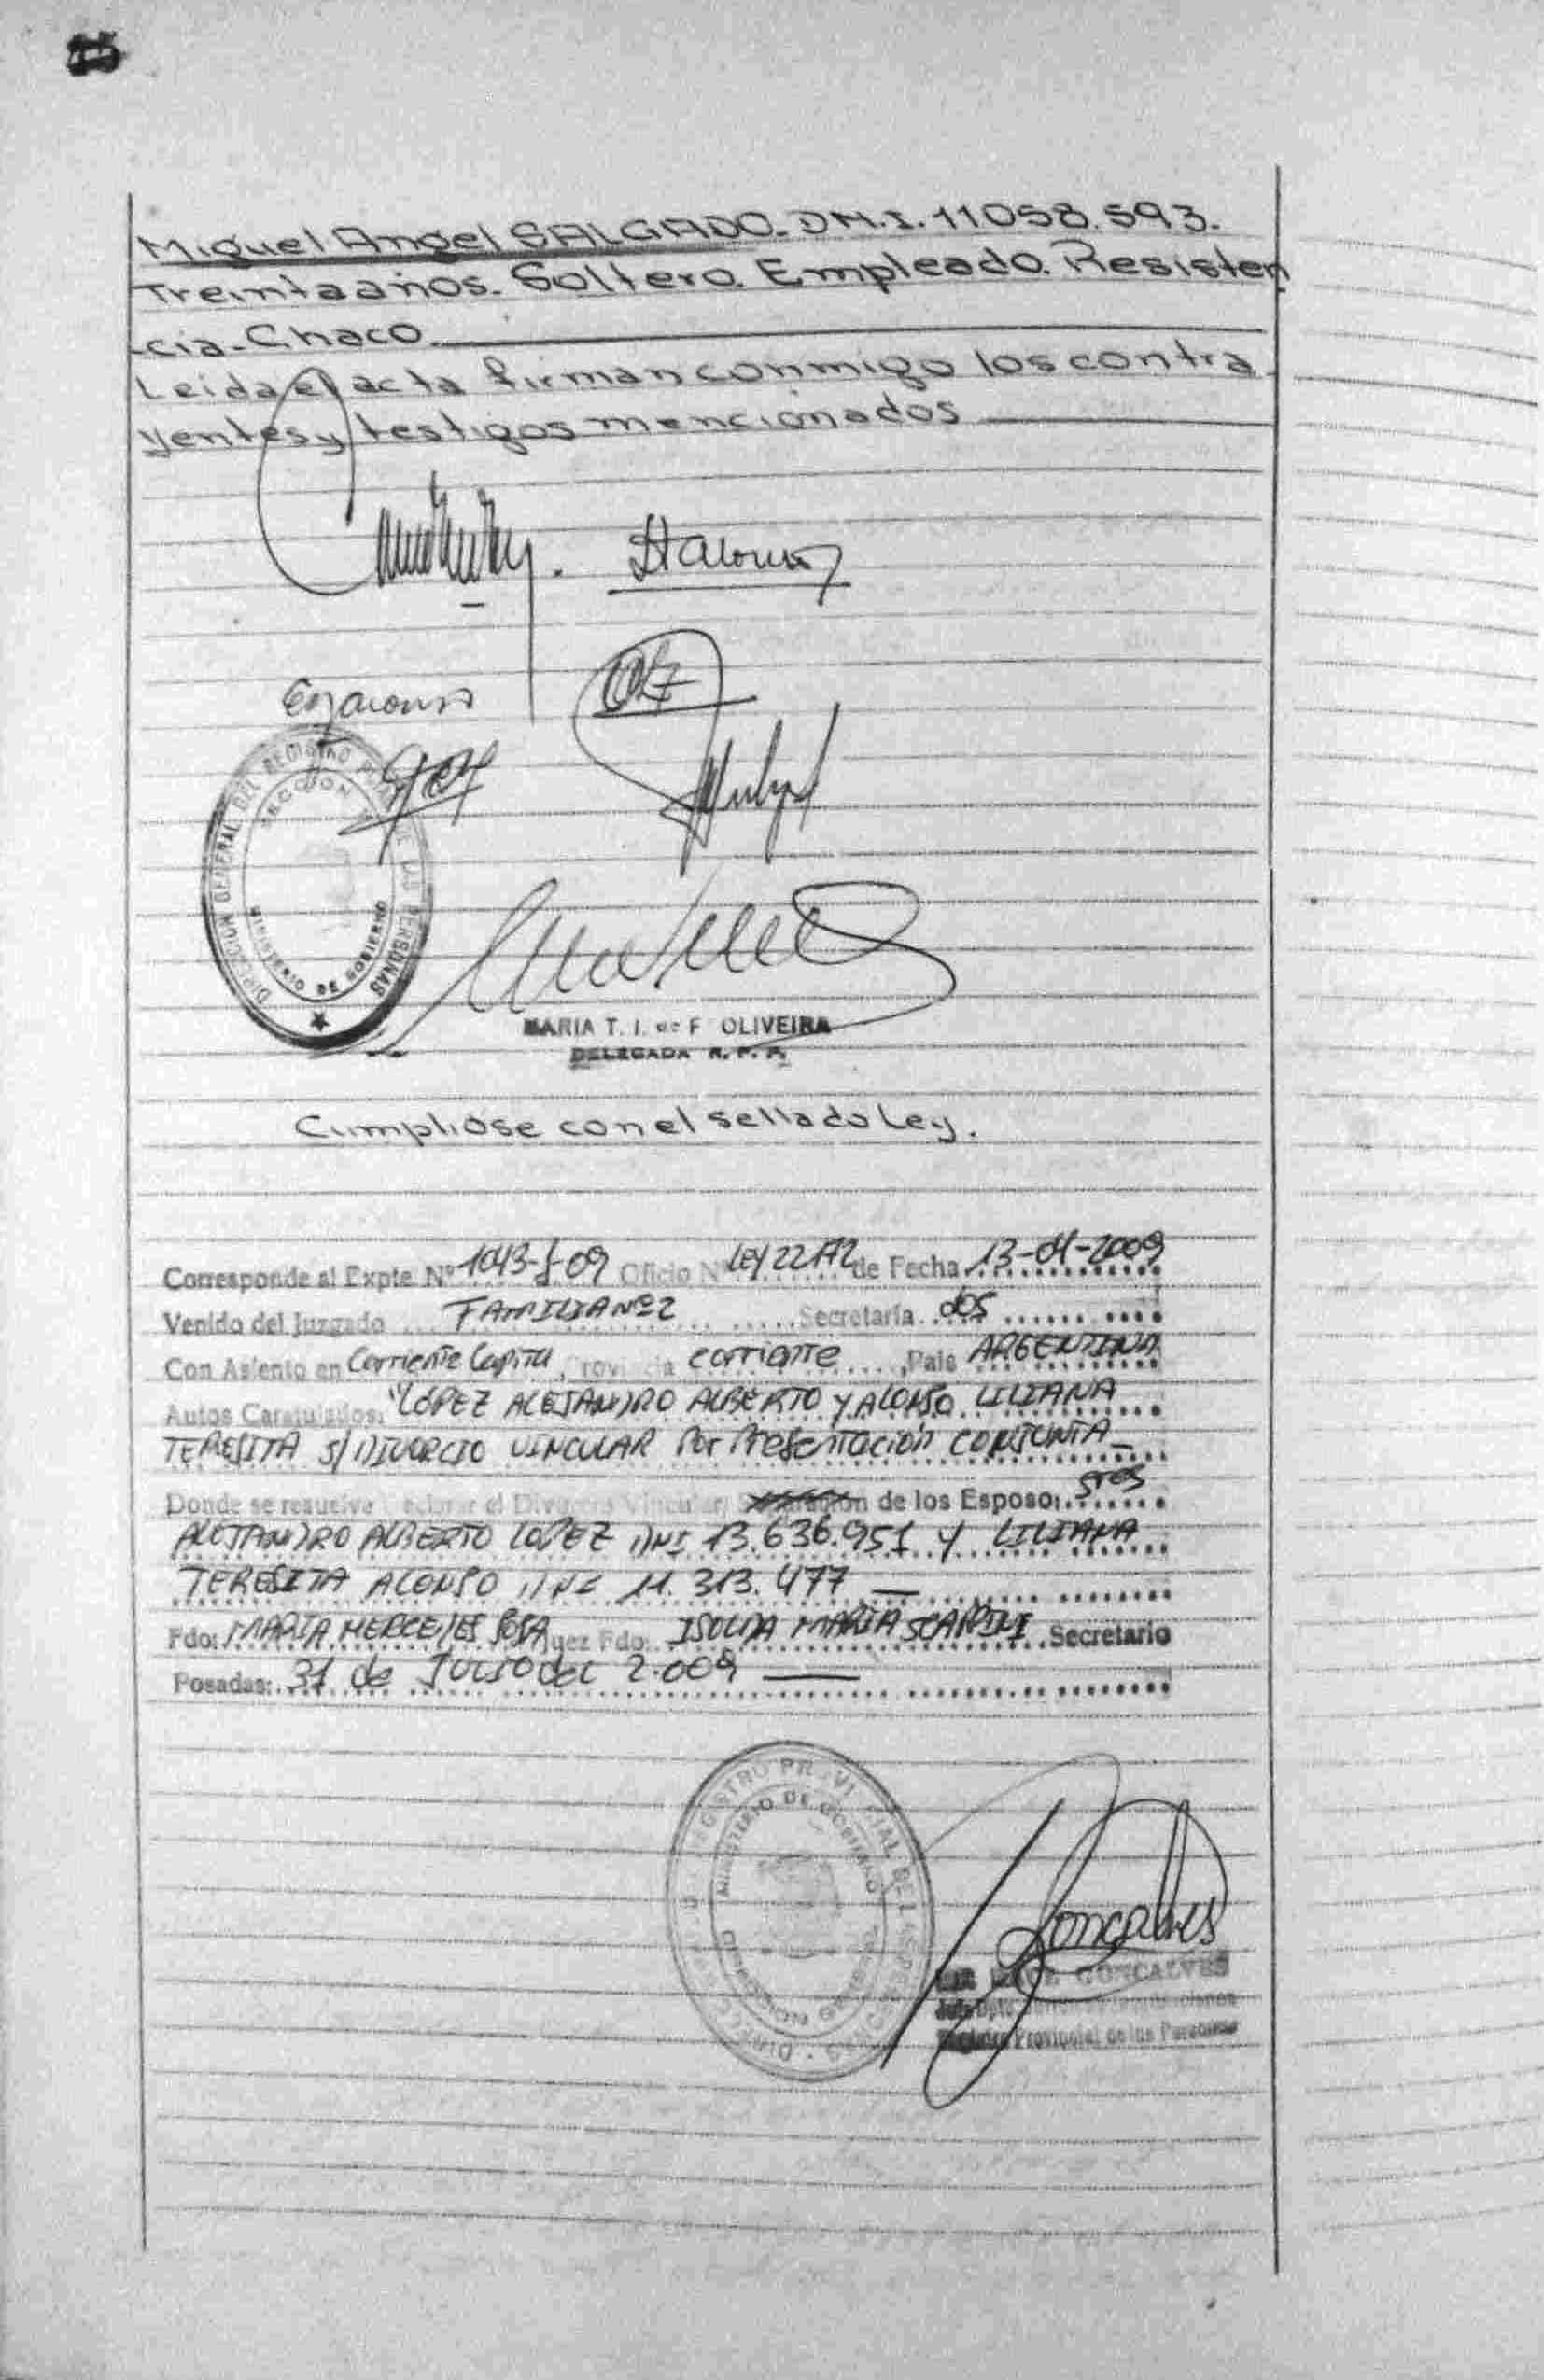 Miguel Angel SALGADO. DM.I. 11058.593.
Treinta años. Soltero. Empleado. Resisten
cia-Chaco.
Leida el acta firman conmigo los contra
yentes y testigos mencionados
DIRECCION GENERAL DEL REGISTRO DE LAS PERSONAS
SECCION
MINISTERIO DE GOBIERNO
MARIA T. I. de F OLIVEIRA
DELEGADA R. P. P.
Cumpliose con el sellado Ley.
Corresponde al Expte Nº 1043-J-09 Oficio Nº LEY 22172 de Fecha 13-04-2009
Venido del Juzgado FAMILIA Nº 2 Secretaria dos
Con Asiento en Corriente Capital, Provincia corriente, Pais ARGENTINA
Autos Caratulados: "LÓPEZ ALEJANDRO ALBERTO Y ALONSO LILIANA
TERESITA S/DIVORCIO VINCULAR Por Presentación CONJUNTA
Donde se resuelve Declarar el Divorcio Vincular, Separación de los Esposo: Sres
ALEJANDRO ALBERTO LOPEZ DNI 13.636.951 Y LILIANA
TERESITA ALONSO DNI 11.313.477
Fdo: MARIA MERCEDES SOSA Juez Fdo: ISOLDA MARIA Secretario
Posadas: 31 de JULIO del 2.009
REGISTRO PROVINCIAL DE LAS PERSONAS
MINISTERIO DE GOBIERNO
Goncalves
GONCALVES
Jefe Dpto
Registro Provincial de las Personas